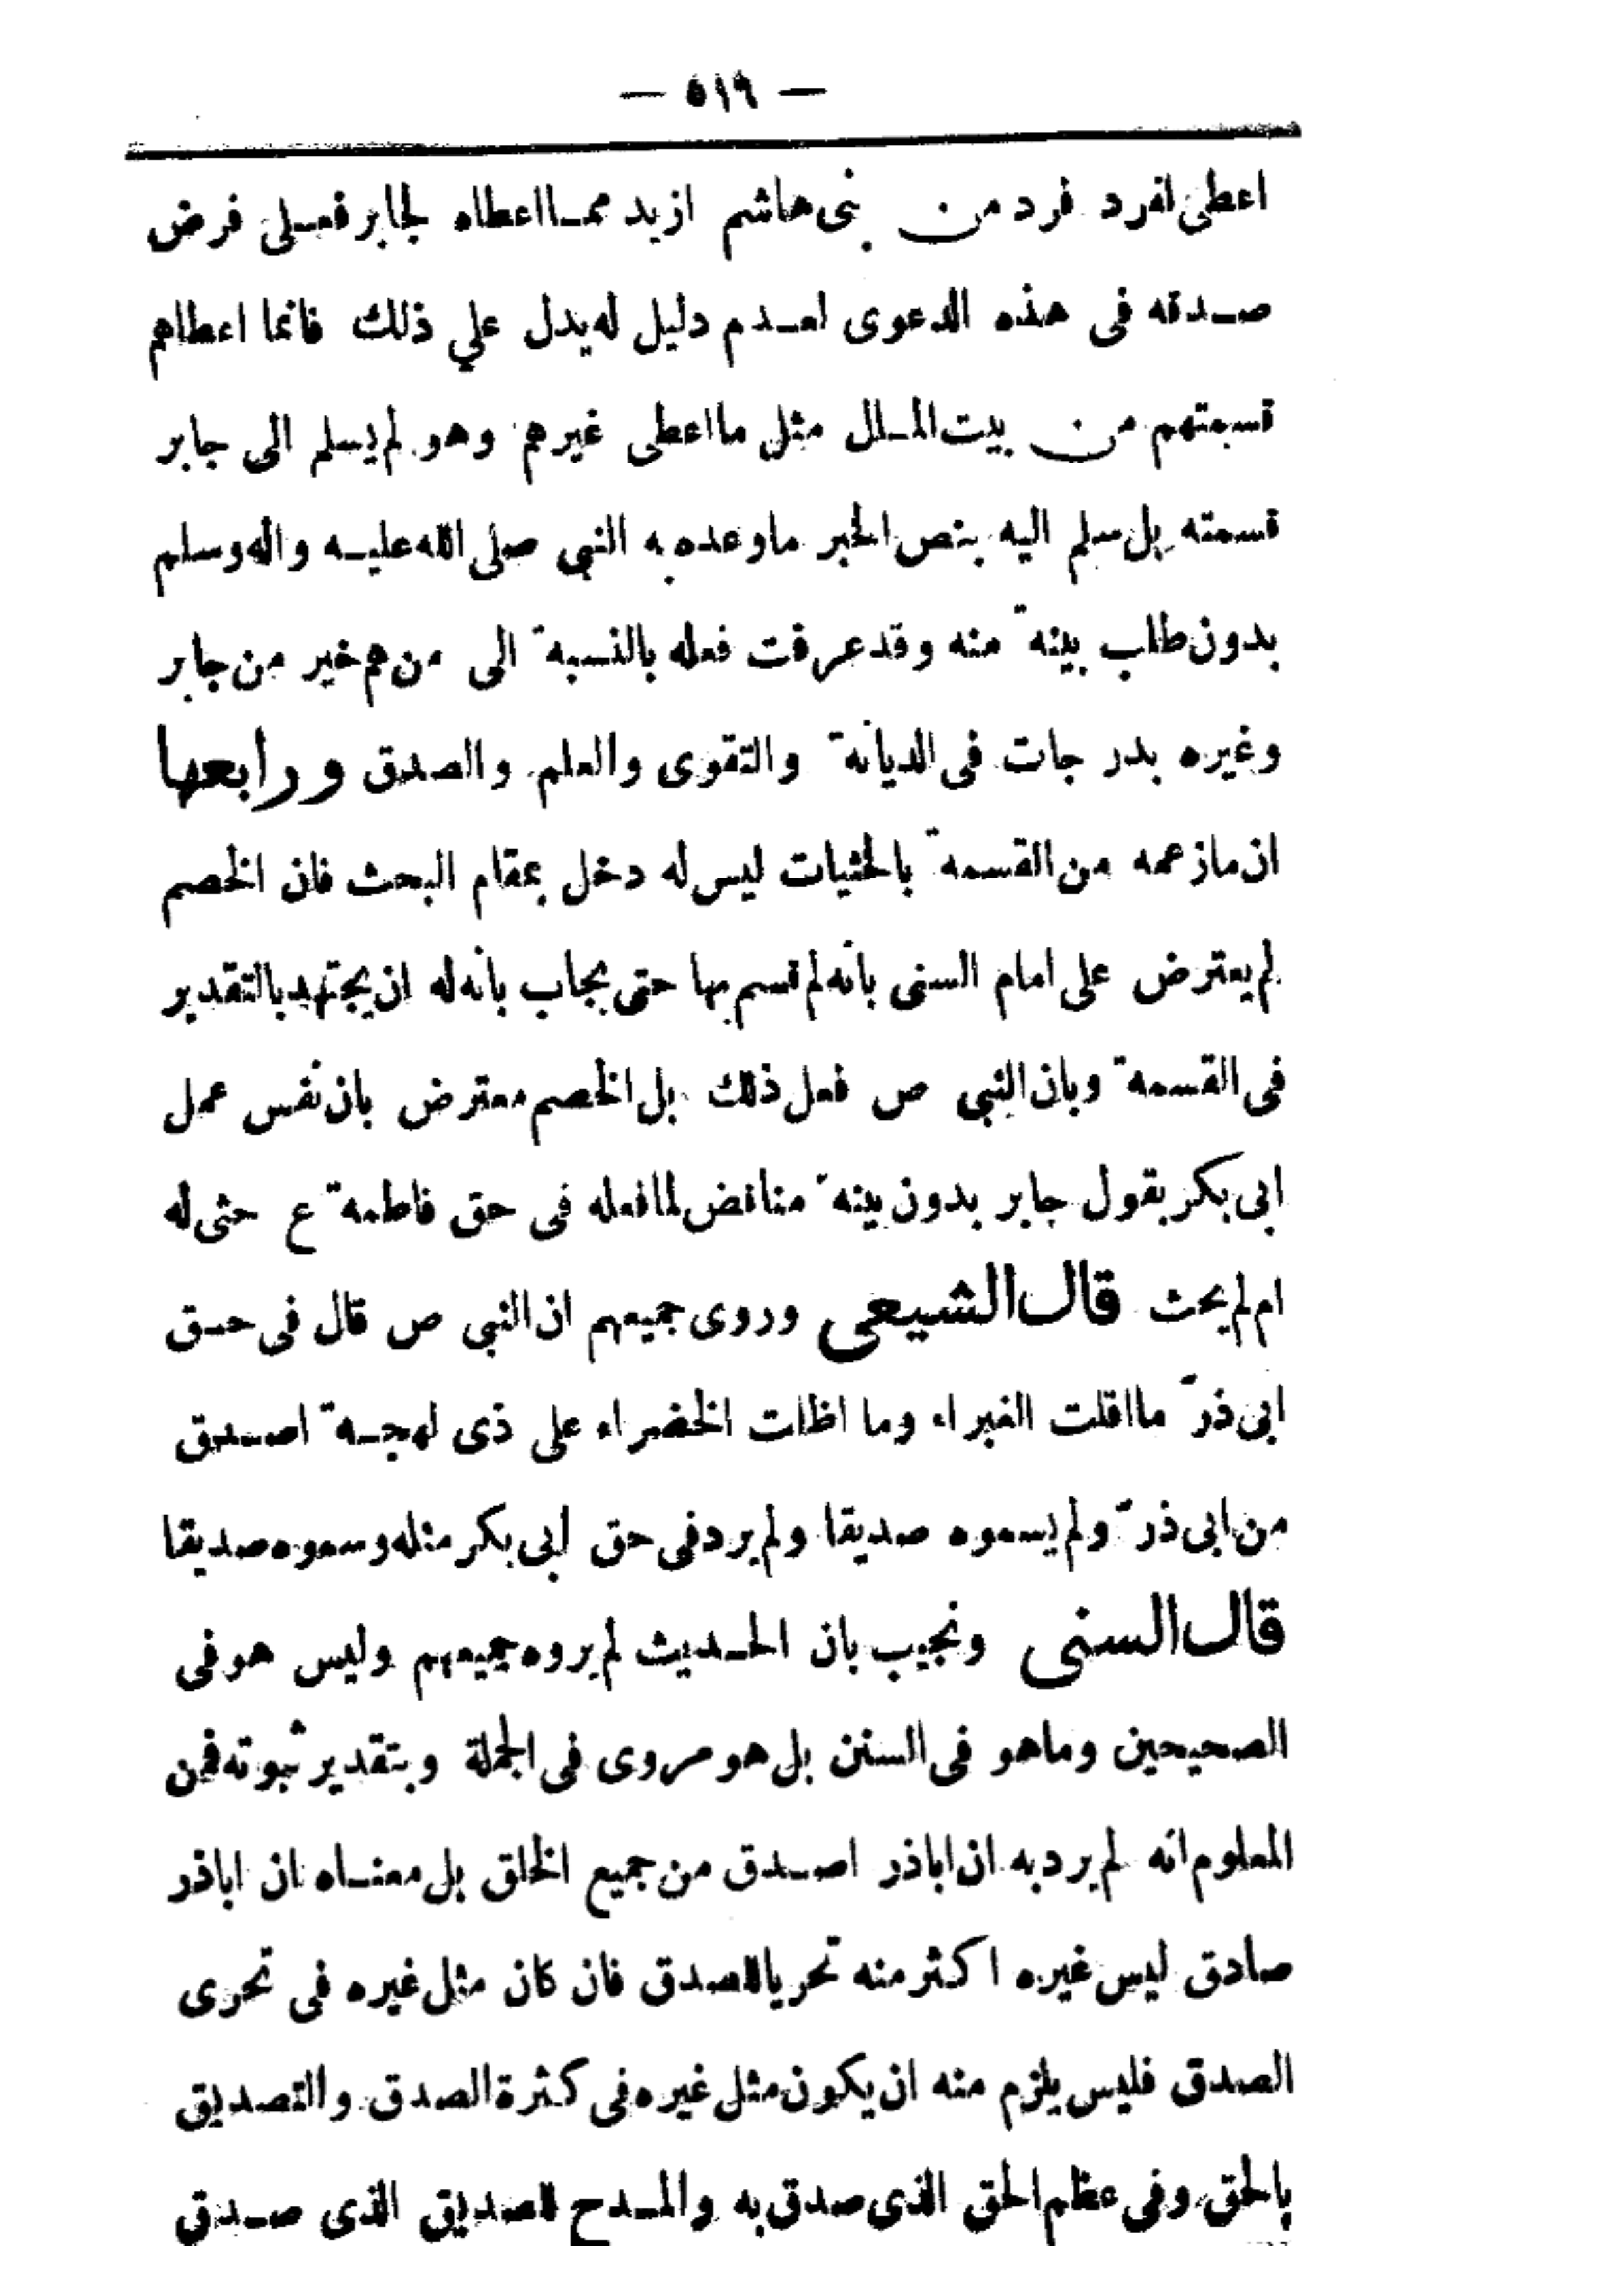 — ٥١٩ —
اعطى لفرد فرد من بنى هاشم ازيد مما اعطاه لجابر فعلى فرض
صدقه فى هذه الدعوى لعدم دليل له يدل علي ذلك فانما اعطاهم
قسمتهم من بيت المال مثل ما اعطى غيرهم وهو لم يسلم الى جابر
قسمته بل سلم اليه بنص الخبر ما وعده به النبى صلى الله عليه واله وسلم
بدون طلب بينة منه وقد عرفت فعله بالنسبة الى من هم خير من جابر
وغيره بدرجات فى الديانة والتقوى والعلم والصدق ورابعها
ان ما زعمه من القسمة بالحثيات ليس له دخل بمقام البحث فان الخصم
لم يعترض على امام السنى بانه لم قسم بها حتى يجاب بانه له ان يجتهد بالتقدير
فى القسمة وبان النبى ص فعل ذلك بل الخصم معترض بان نفس عمل
ابى بكر بقول جابر بدون بينة مناقض لما فعله فى حق فاطمة ع حثى له
ام لم يحث قال الشيعى وروى جميعهم ان النبى ص قال فى حق
ابى ذرّ ما اقلت الغبراء وما اظلت الخضراء على ذى لهجة اصدق
من ابى ذرّ ولم يسموه صديقا ولم يرد فى حق ابى بكر مثله وسموه صديقا
قال السنى ونجيب بان الحديث لم يروه جميعهم وليس هو فى
الصحيحين وما هو فى السنن بل هو مروى فى الجملة وبتقدير ثبوته فمن
المعلوم انه لم يرد به ان اباذر اصدق من جميع الخلق بل معناه ان اباذر
صادق ليس غيره اكثر منه تحريا للصدق فان كان مثل غيره فى تحرى
الصدق فليس يلزم منه ان يكون مثل غيره فى كثرة الصدق والتصديق
بالحق وفى عظم الحق الذى صدق به والمدح للصديق الذى صدق